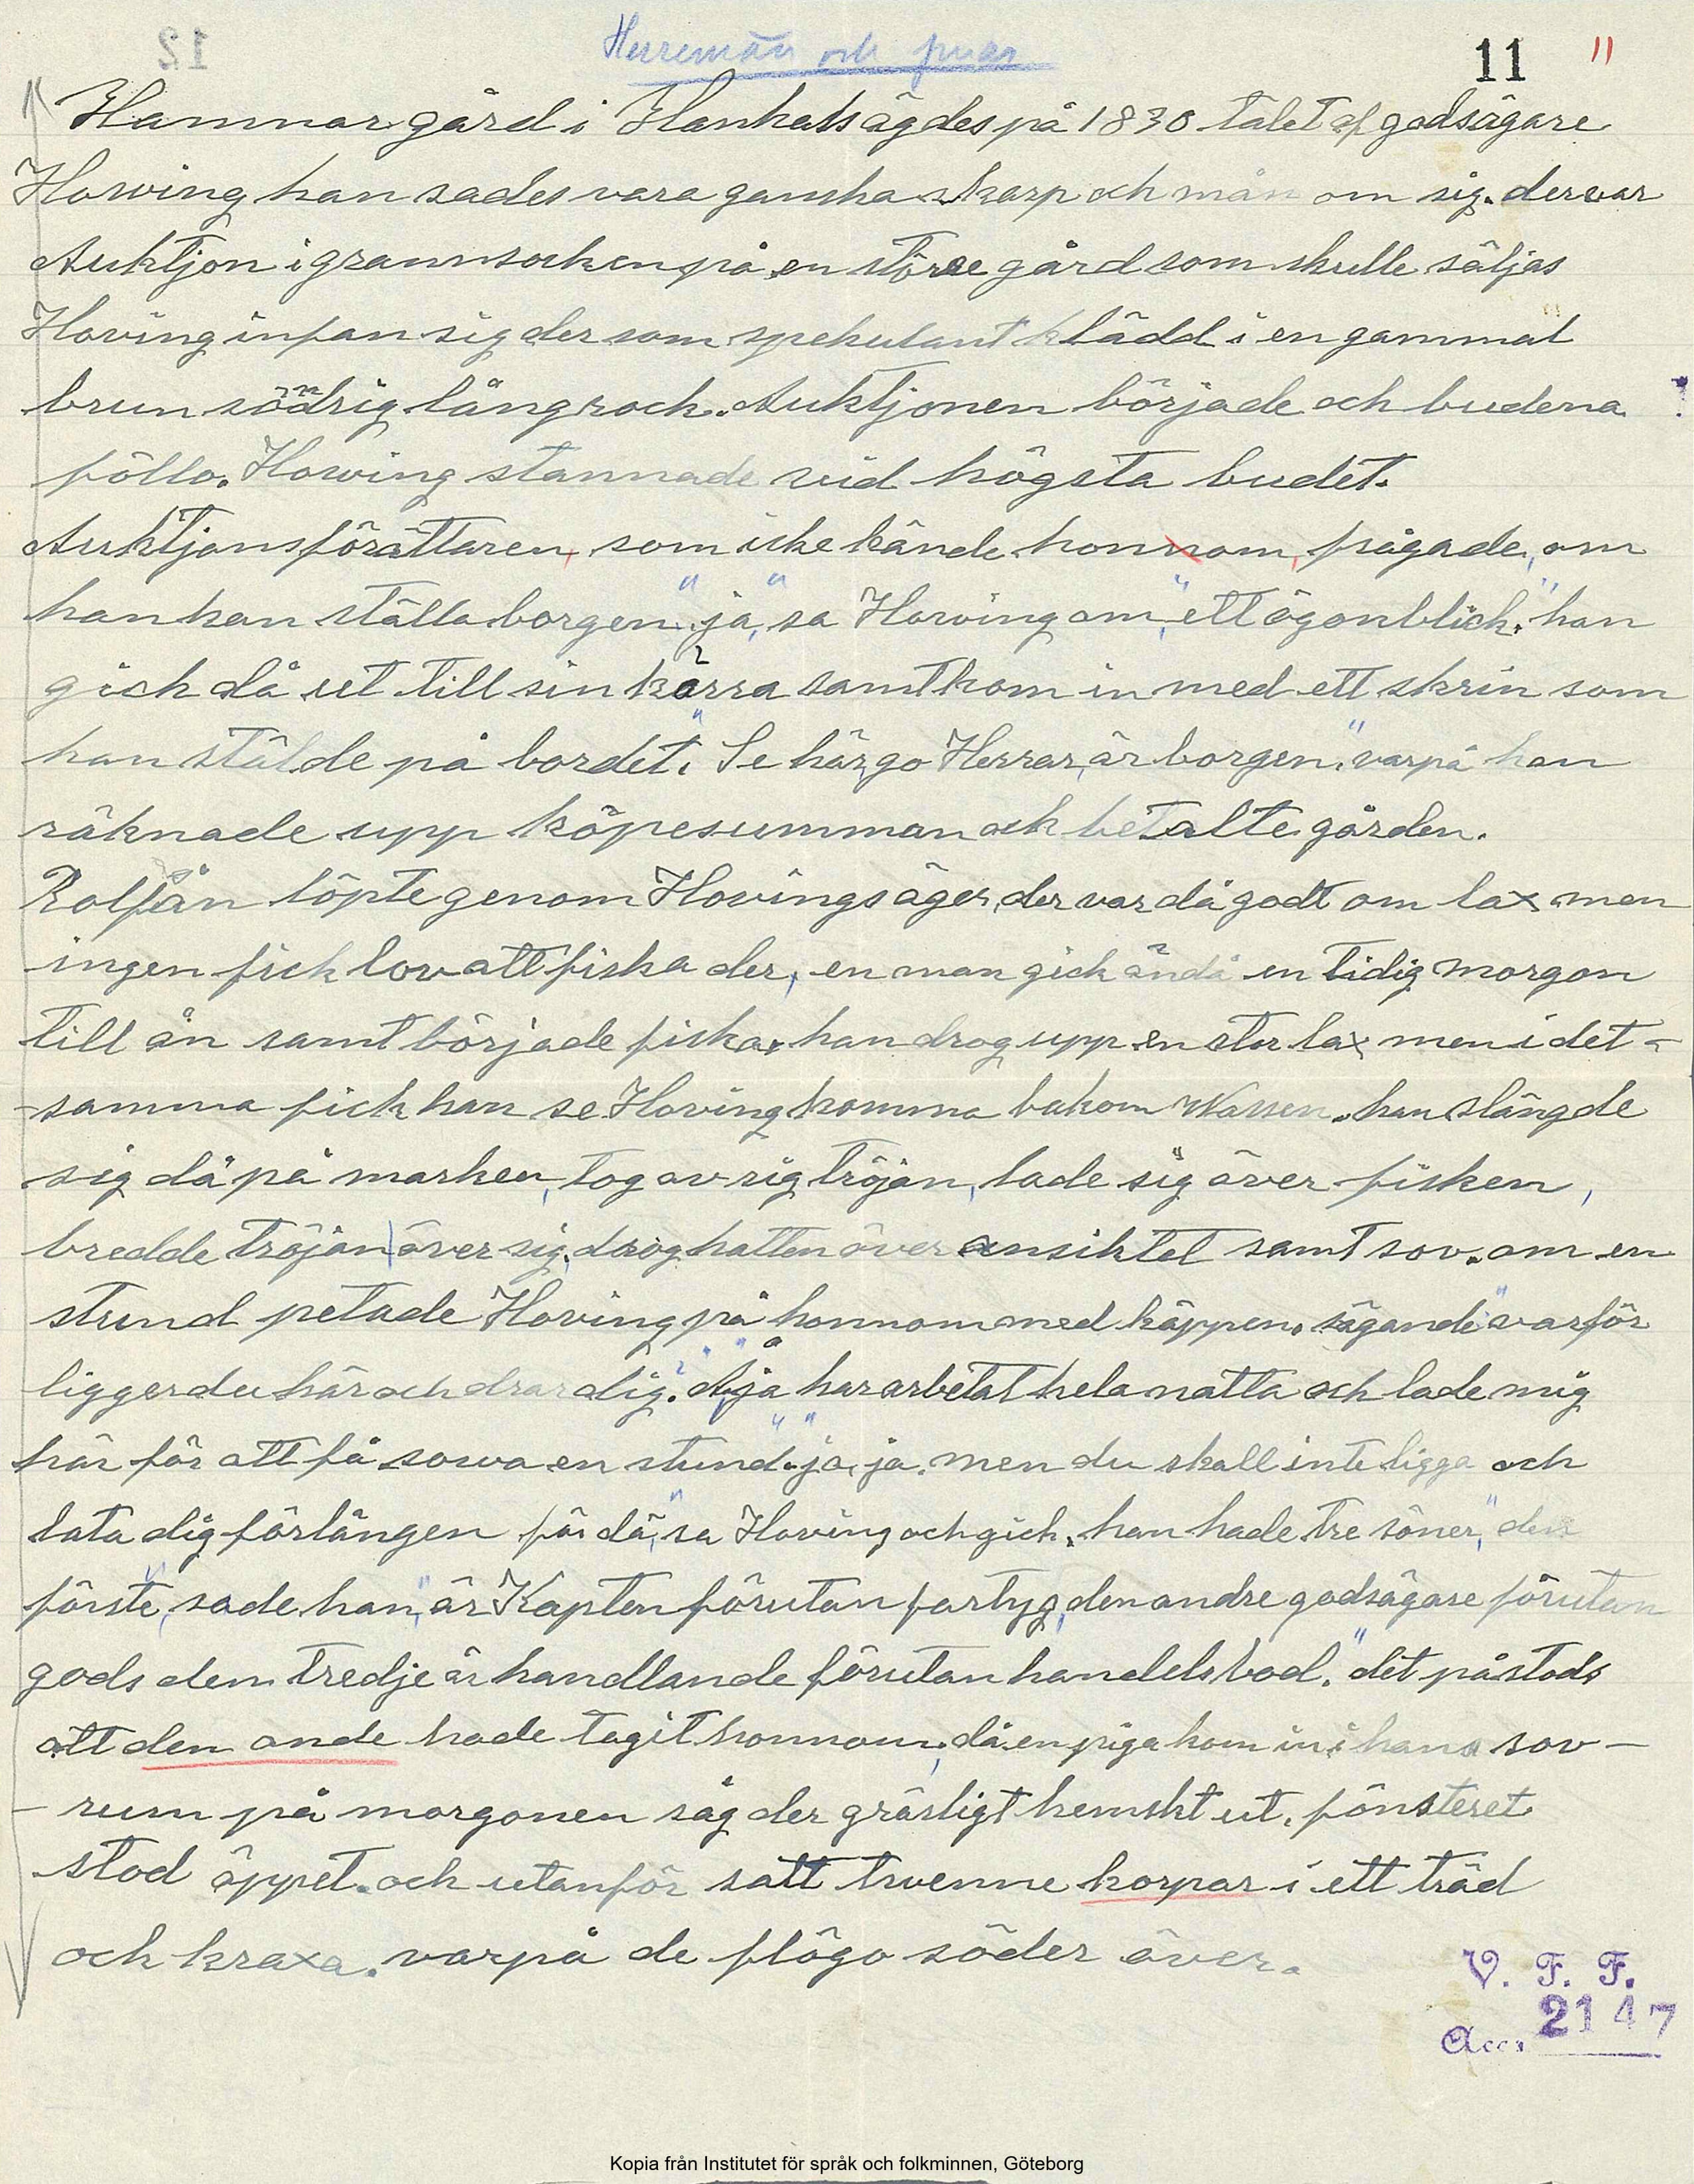 Herremän och fruar
11 "
Hamnar gård i Hanhals ägdes på 1830 talet af godsägare
Howing han sades vara ganska skarp och mån om sig. der var
Auktjon i grannsocken på en större gård som skulle säljas
Hoving infan sig der som spekulant klädd i en gammal
brun södrig långrock. Auktjonen började och budena !
föllo. Howing stannade vid högsta budet.
Auktjonsförättaren, som icke kände honnom, frågade, om
han kan ställa borgen. "ja," sa Howing om, "ett ögonblick." han
gick då ut till sin kärra samt kom in med ett skrin som
han stälde på bordet. "Se här, go Herrar, är borgen." varpå han
räknade upp köpesumman och betalte gården.
Rolfsån löpte genom Hovings äger, der var då godt om lax men
ingen fick lov att fiska der, en man gick ändå en tidig morgon
till ån samt började fiska, han drog upp en stor lax, men i det-
-samma fick han se Hoving komma bakom Wassen. han slängde
sig då på marken, tog av sig tröjan, lade sig över fisken,
bredde tröjan över sig, drog hatten över ansiktet samt sov. om en
stund petade Hoving på honnom med käppen. sägande "varför
ligger du här och drar dig?" "Å, ja har arbetat hela natta och lade mig
här för att få sowa en stund." "ja, ja. men du skall inte ligga och
lata dig förlängen för då," sa Hoving och gick. han hade tre söner, "den
förste, sade han, "är Kapten förutan fartyg, den andre godsägare förutan
gods den tredje är handlande förutan handelsbod." det påstods
att den onde hade tagit honnom, då en piga kom in i hans sov-
-rum på morgonen såg der gräsligt hemskt ut. fönsteret
stod öppet. och utanför satt tvenne korpar i ett träd
och kraxa. varpå de flögo söder över.
V. F. F.
Acc. 2147
Kopia från Institutet för språk och folkminnen, Göteborg